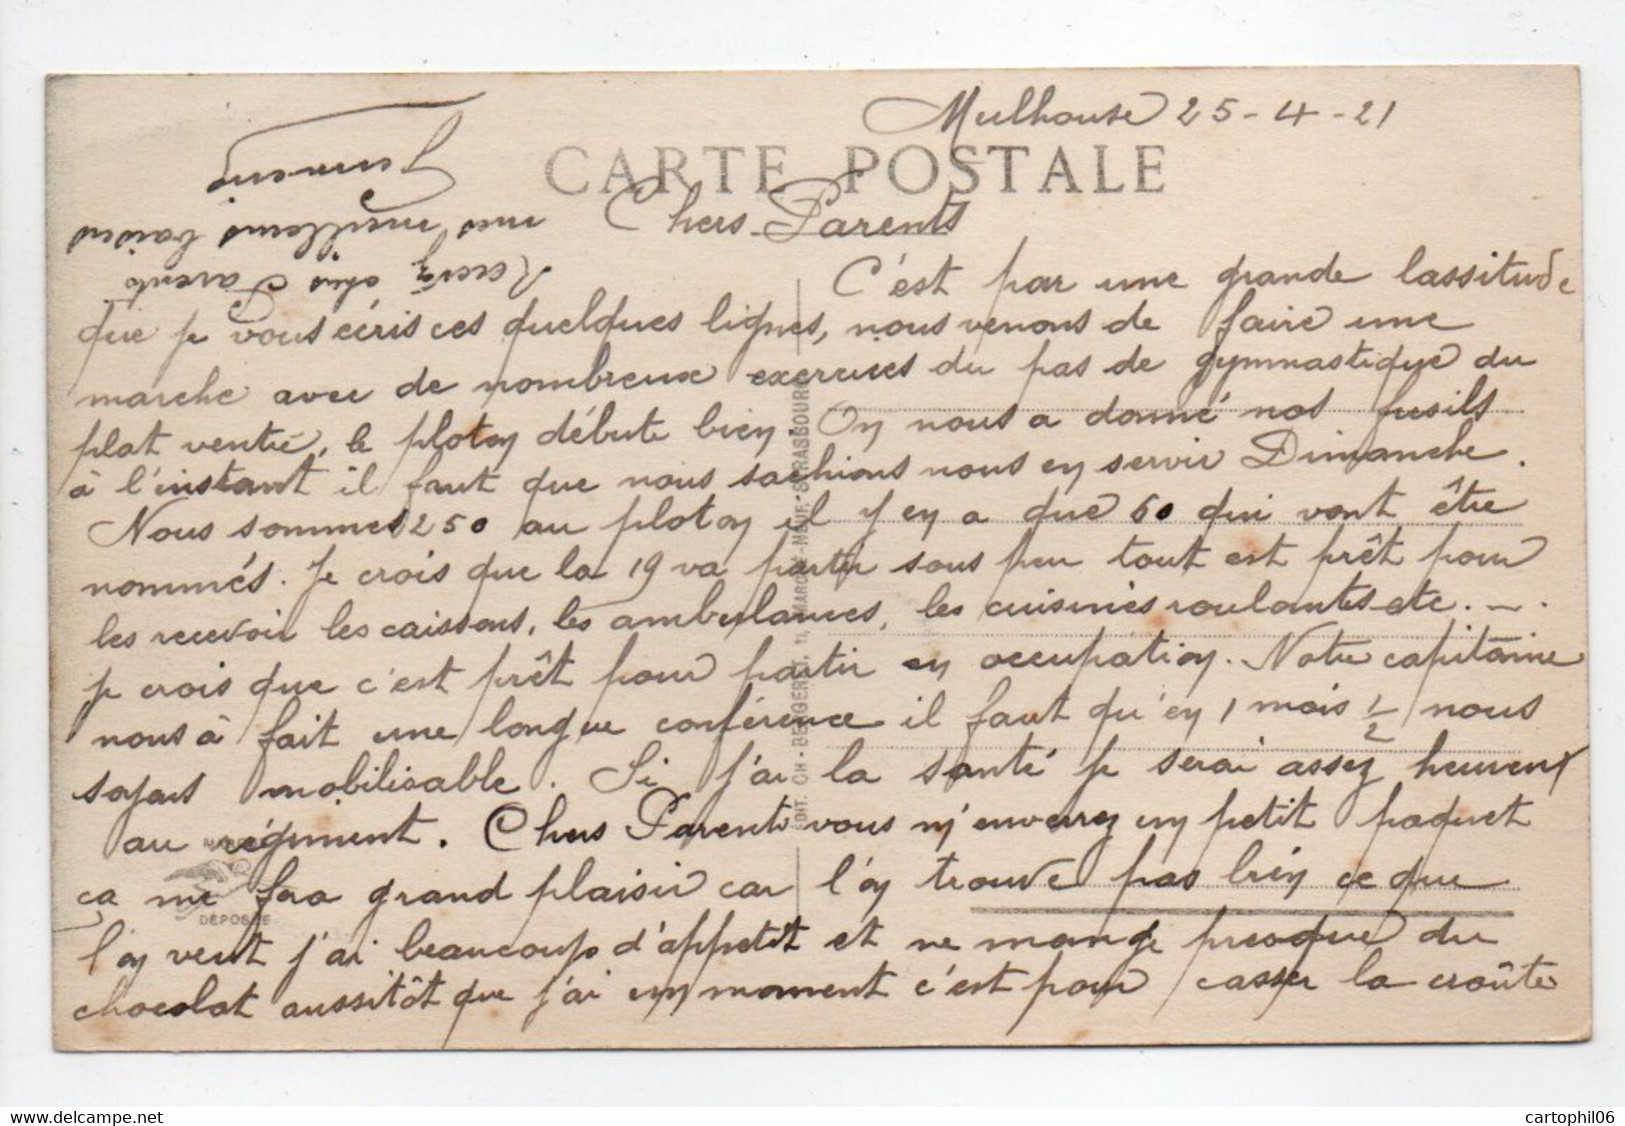 Mulhouse 25-4-21
CARTE POSTALE
Chers Parents
C'est par une grande lassitude
que je vous écris ces quelques lignes, nous venons de faire une
marche avec de nombreux exercices du pas de gymnastique du
plat ventre, le ploton débute bien. On nous a donné nos fusils
à l'instant il faut que nous sachions nous en servir Dimanche.
Nous sommes 250 au ploton il y en a que 60 qui vont être
nommés. Je crois que la 19 va partir sous peu tout est prêt pour
les recevoir les caissons, les ambulances, les cuisines roulantes etc...
je crois que c'est prêt pour partir en occupation. Notre capitaine
nous à fait une longue conférence il faut qu'en 1 mois 1/2 nous
soyons mobilisable. Si j'ai la santé je serai assez heureux
au régiment. Chers Parents vous m'enverrez un petit paquet
ça me fera grand plaisir car l'on trouve pas bien ce que
l'on veut j'ai beaucoup d'appétit et ne mange presque du
chocolat aussitôt que j'ai un moment c'est pour casser la croûte
Recevez chers Parents
mes meilleurs baisers
EDIT. CH. BERGERET, MARCHÉ-NEUF-STRASBOURG
DÉPOSÉE
cartophil06
www.delcampe.net